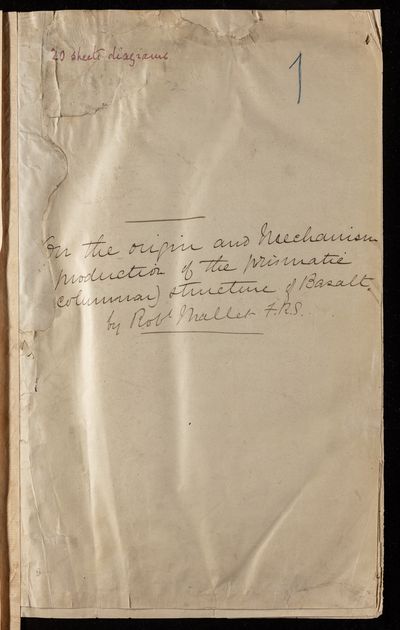 20 sheets diagrams
1
On the origin and Mechanism
production of the prismatic
(columnar) structure of Basalt.
by Robt Mallet F.R.S.